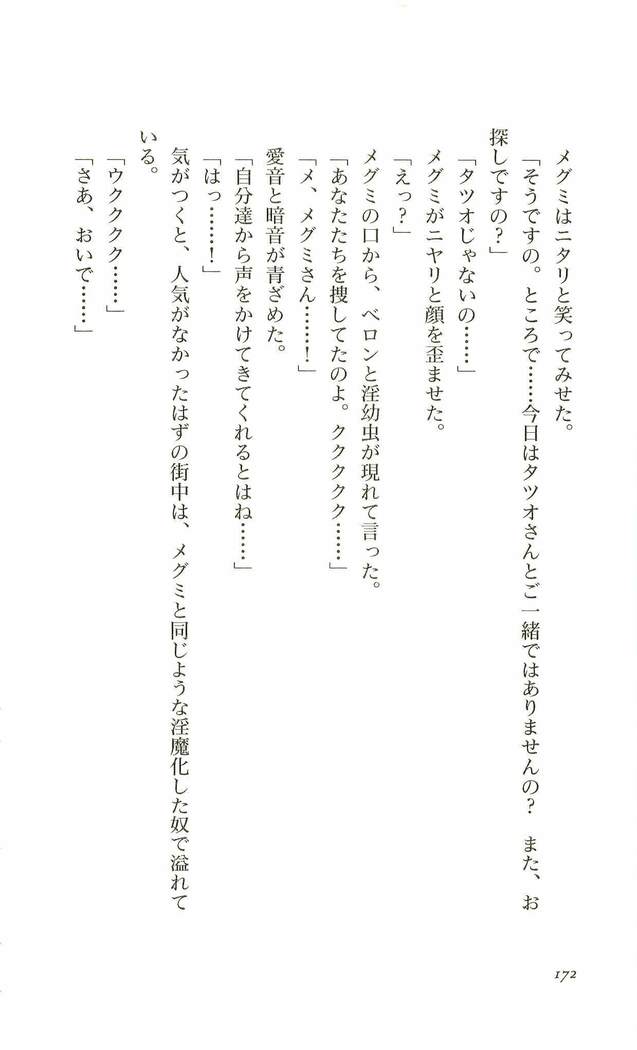 メグミはニタリと笑ってみせた。
「そうですの。ところで……今日はタツオさんとご一緒ではありませんの？　また、お
探しですの？」
「タツオじゃないの……」
メグミがニヤリと顔を歪ませた。
「えっ？」
メグミの口から、ベロンと淫幼虫が現れて言った。
「あなたたちを捜してたのよ。ククククク……」
「メ、メグミさん……！」
愛音と暗音が青ざめた。
「自分達から声をかけてきてくれるとはね……」
「はっ……！」
気がつくと、人気がなかったはずの街中は、メグミと同じような淫魔化した奴で溢れて
いる。
「ウクククク……」
「さあ、おいで……」
172